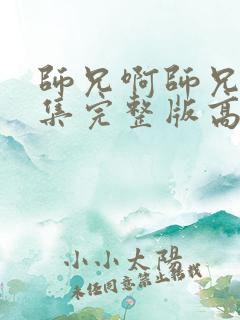 師兄啊師兄
集完整版高
小小太陽
未经同意禁止转载